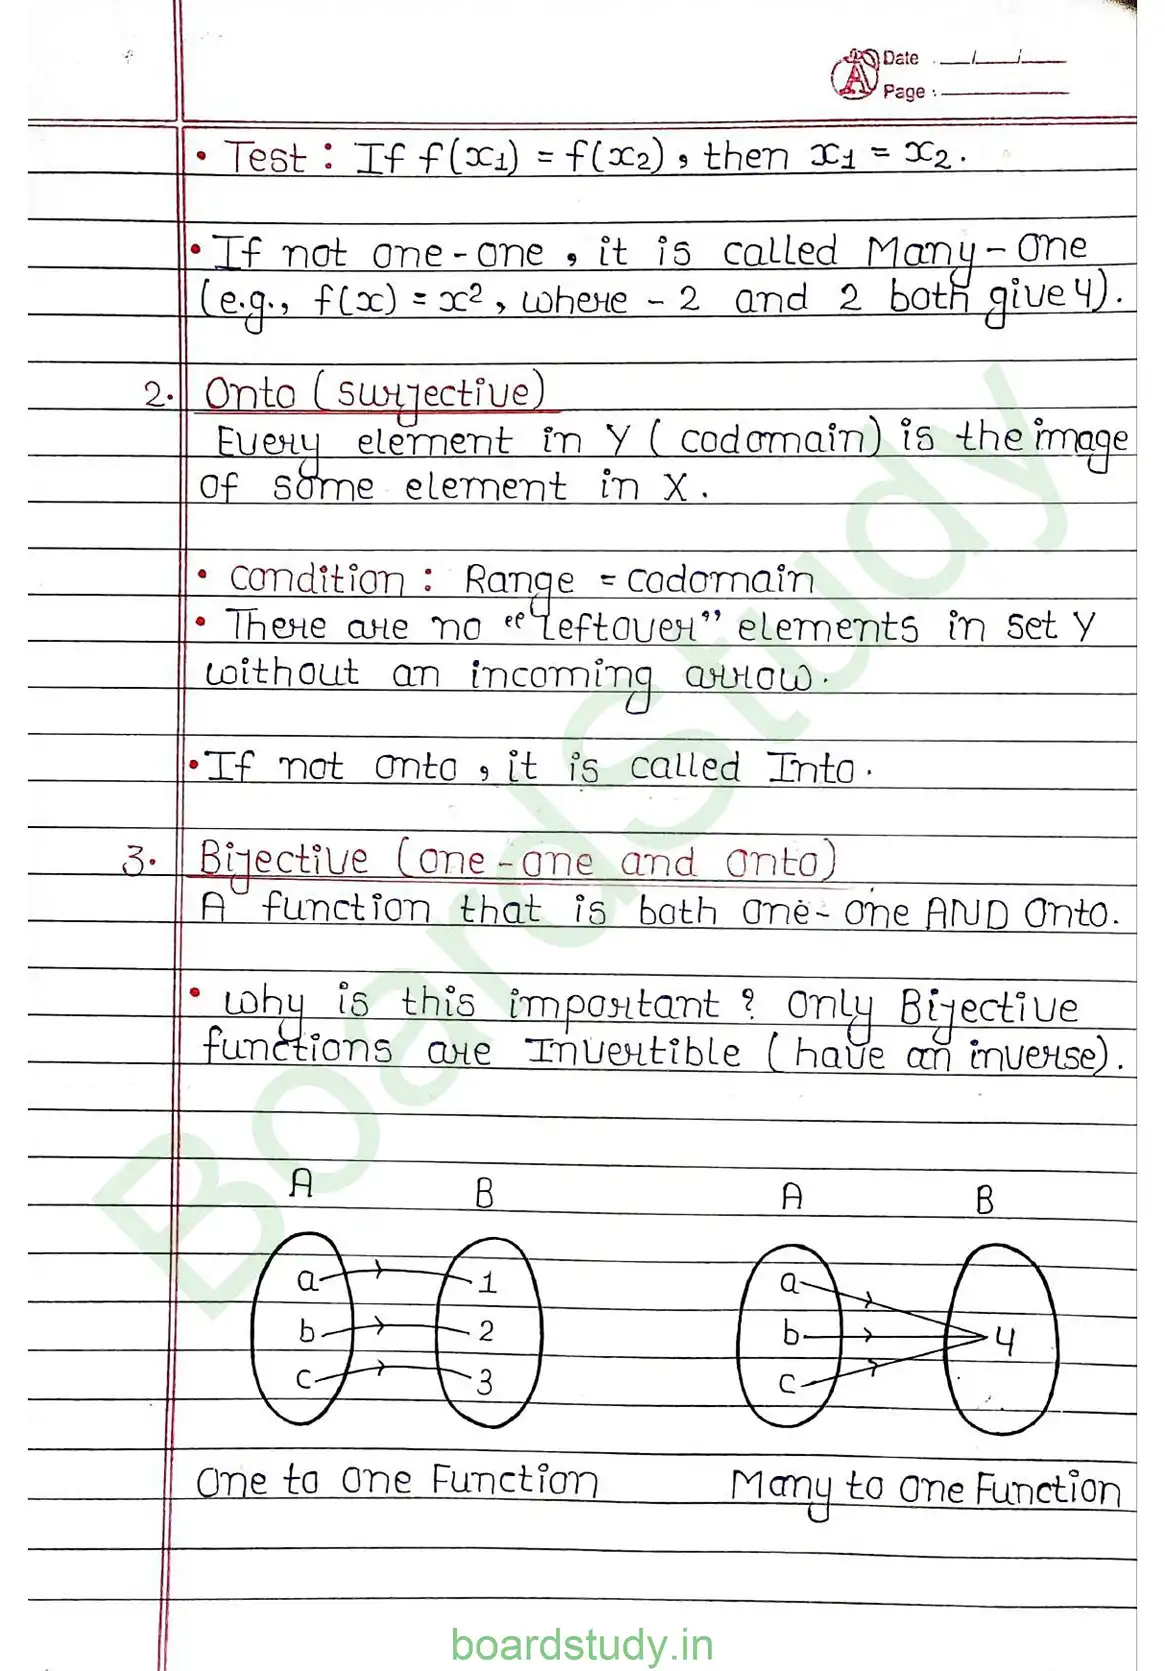 Date : __/__/__
Page :
• Test : If f(x1) = f(x2), then x1 = x2.
• If not one-one, it is called Many-One
(e.g., f(x) = x², where -2 and 2 both give 4).
2. Onto (surjective)
Every element in Y (codomain) is the image
of some element in X.
• condition : Range = codomain
• There are no "leftover" elements in set Y
without an incoming arrow.
• If not onto, it is called Into.
3. Bijective (one-one and onto)
A function that is both one-one AND Onto.
• why is this important? Only Bijective
functions are Invertible (have an inverse).
A B A B
a 1 a
b 2 b 4
c 3 c
One to One Function Many to One Function
BoardStudy
boardstudy.in